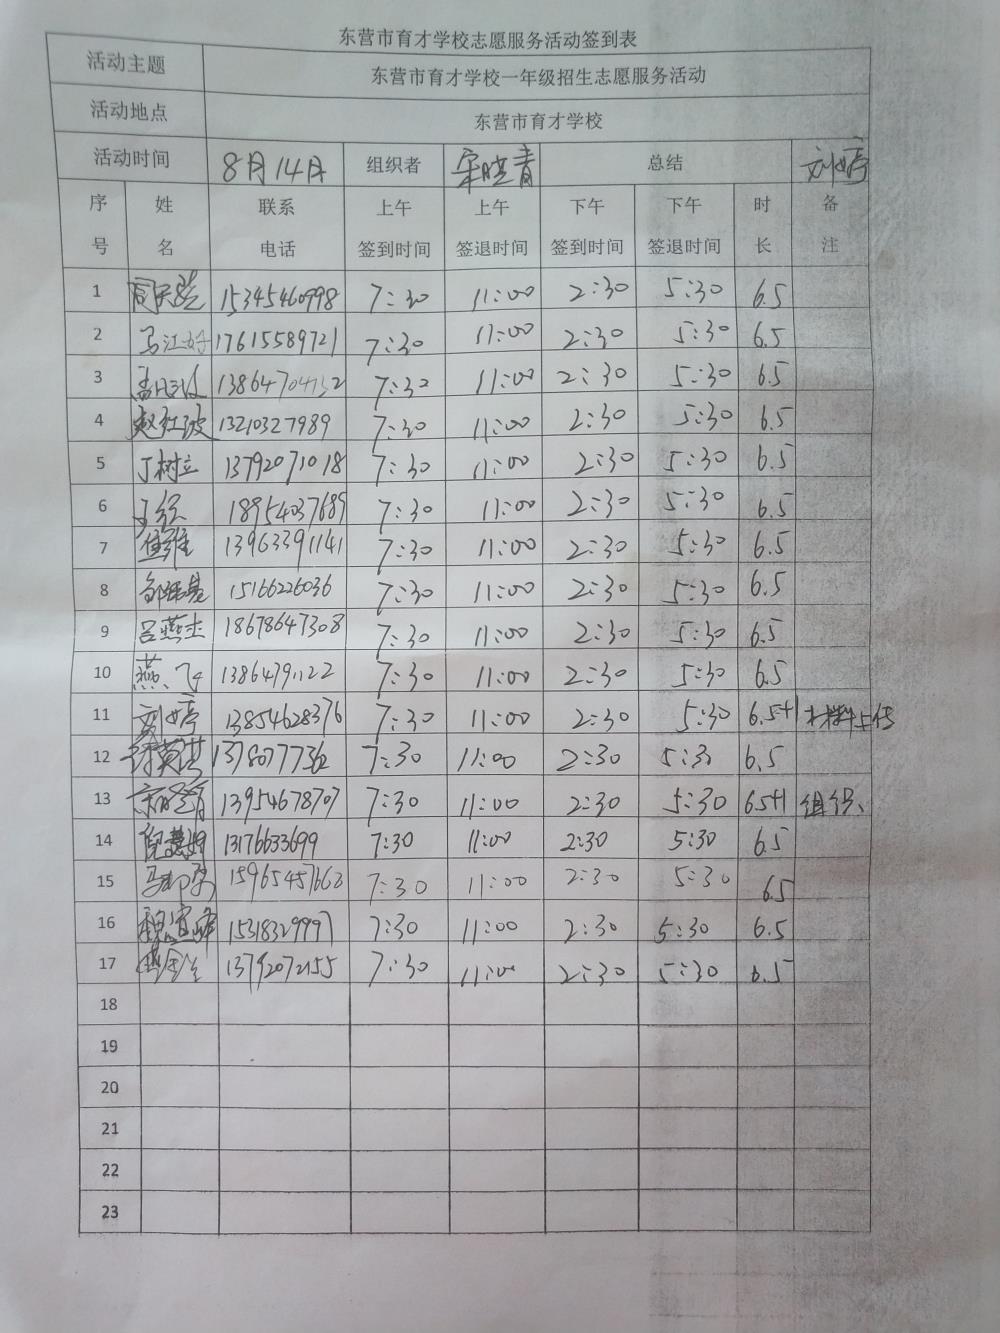 东营市育才学校志愿服务活动签到表
活动主题 东营市育才学校一年级招生志愿服务活动
活动地点 东营市育才学校
活动时间 8月14日 组织者 宋晓青 总结 刘婷
序号 姓名 联系电话 上午签到时间 上午签退时间 下午签到时间 下午签退时间 时长 备注
1 15345460998 7:30 11:00 2:30 5:30 6.5
2 马江好 17615589721 7:30 11:00 2:30 5:30 6.5
3 7:30 11:00 2:30 5:30 6.5
4 赵红波 13210327989 7:30 11:00 2:30 5:30 6.5
5 丁树立 13792071018 7:30 11:00 2:30 5:30 6.5
6 18954037689 7:30 11:00 2:30 5:30 6.5
7 13963391141 7:30 11:00 2:30 5:30 6.5
8 15166226036 7:30 11:00 2:30 5:30 6.5
9 吕燕杰 18678647308 7:30 11:00 2:30 5:30 6.5
10 燕飞 13864791122 7:30 11:00 2:30 5:30 6.5
11 刘婷 13854628376 7:30 11:00 2:30 5:30 6.5+1 材料上传
12 7:30 11:00 2:30 5:30 6.5
13 宋晓青 13954678707 7:30 11:00 2:30 5:30 6.5+1 组织
14 13176633699 7:30 11:00 2:30 5:30 6.5
15 7:30 11:00 2:30 5:30 6.5
16 15318329997 7:30 11:00 2:30 5:30 6.5
17 13792072155 7:30 11:00 2:30 5:30 6.5
18
19
20
21
22
23